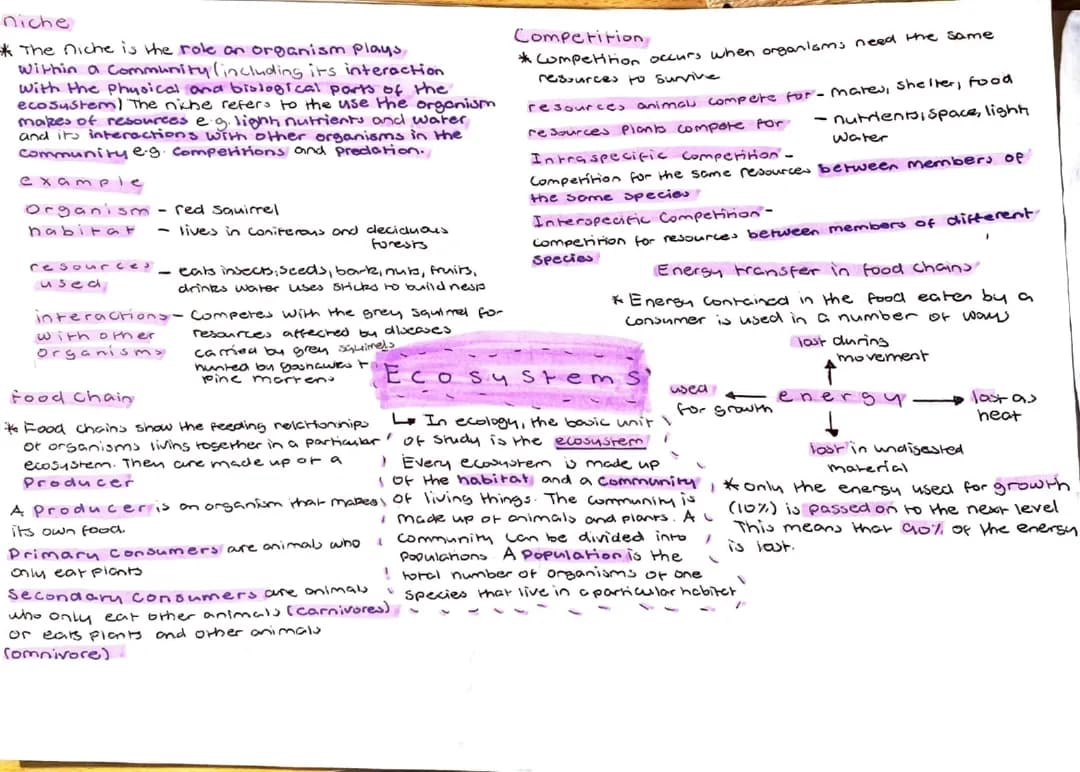 Niche
* The Niche is the role an organism plays
within a community (including its interaction
with the physical and biological parts of the
ecosystem) The niche refers to the use the organism
makes of resources e.g. light nutrients and water
and its interactions with other organisms in the
community e.g. competitions and predation.
example
organism - red squirrel
habitat - lives in coniferous and deciduous
forests
resources - eats insects, seeds, bark, nuts, fruits,
used drinks water uses sticks to build nests
interactions - competes with the grey squirrel for
with other resources affected by diseases
organisms carried by grey squirrels
hunted by goshawks +
pine martens
Food Chain
* Food chains show the feeding relationships
of organisms living together in a particular
ecosystem. Then are made up of a
Producer
A producer is an organism that makes
its own food.
Primary consumers are animals who
only eat plants
Secondary consumers are animals
who only eat other animals (carnivores)
or eats plants and other animals
(omnivore)
Ecosystems
↳ In ecology, the basic unit
of study is the ecosystem
Every ecosystem is made up
of the habitat and a community
of living things. The community is
made up of animals and plants. A
community can be divided into
Populations. A population is the
total number of organisms of one
species that live in a particular habitet
Competition
* Competition occurs when organisms need the same
resources to survive
resources animals compete for - mates, shelter, food
resources plants compete for - nutrients, space, light
water
Intraspecific competition -
Competition for the same resources between members of
the same species
Interspecific competition -
competition for resources between members of different
species
Energy transfer in food chains
* Energy contained in the food eaten by a
consumer is used in a number of ways
lost during
movement
used
for growth
energy
lost as
heat
lost in undigested
material
* only the energy used for growth
(10%) is passed on to the next level
This means that 90% of the energy
is lost.